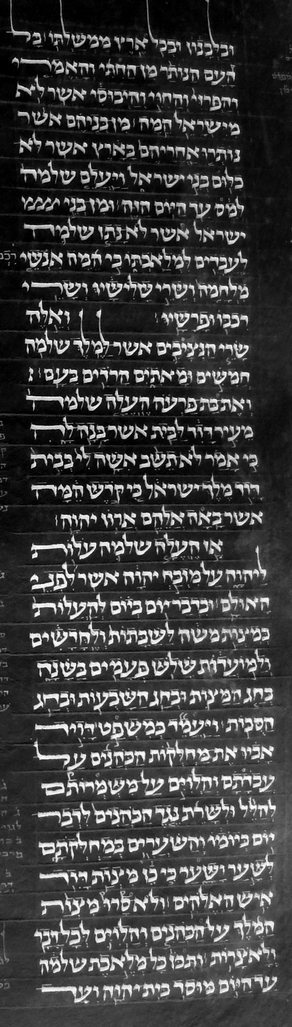 ובלבנון ובכל ארץ ממשלתו׃ כל
העם הנותר מן החתי והאמרי
והפרזי והחוי והיבוסי אשר לא
מישראל המה׃ מן בניהם אשר
נותרו אחריהם בארץ אשר לא
כלום בני ישראל ויעלם שלמה
למס עד היום הזה׃ ומן בני
ישראל אשר לא נתן שלמה
לעבדים למלאכתו כי המה אנשי
מלחמה ושרי שלישיו ושרי
רכבו ופרשיו׃ ואלה
שרי הנציבים אשר למלך שלמה
חמשים ומאתים הרדים בעם׃
ואת בת פרעה העלה שלמה
מעיר דויד לבית אשר בנה לה
כי אמר לא תשב אשה לי בבית
דויד מלך ישראל כי קדש המה
אשר באה אלהם ארון יהוה׃
אז העלה שלמה עלות
ליהוה על מזבח יהוה אשר לפני
האולם׃ ובדבר יום ביום להעלות
כמצות משה לשבתות ולחדשים
ולמועדות שלש פעמים בשנה
בחג המצות ובחג השבעות ובחג
הסכות׃ ויעמד כמשפט דויד
אביו את מחלקות הכהנים על
עבדתם והלוים על משמרותם
להלל ולשרת נגד הכהנים לדבר
יום ביומו והשערים במחלקתם
לשער ושער כי כן מצות דויד
איש האלהים׃ ולא סרו מצות
המלך על הכהנים והלוים לכל דבר
ולאצרות׃ ותכן כל מלאכת שלמה
עד היום מוסד בית יהוה ועד